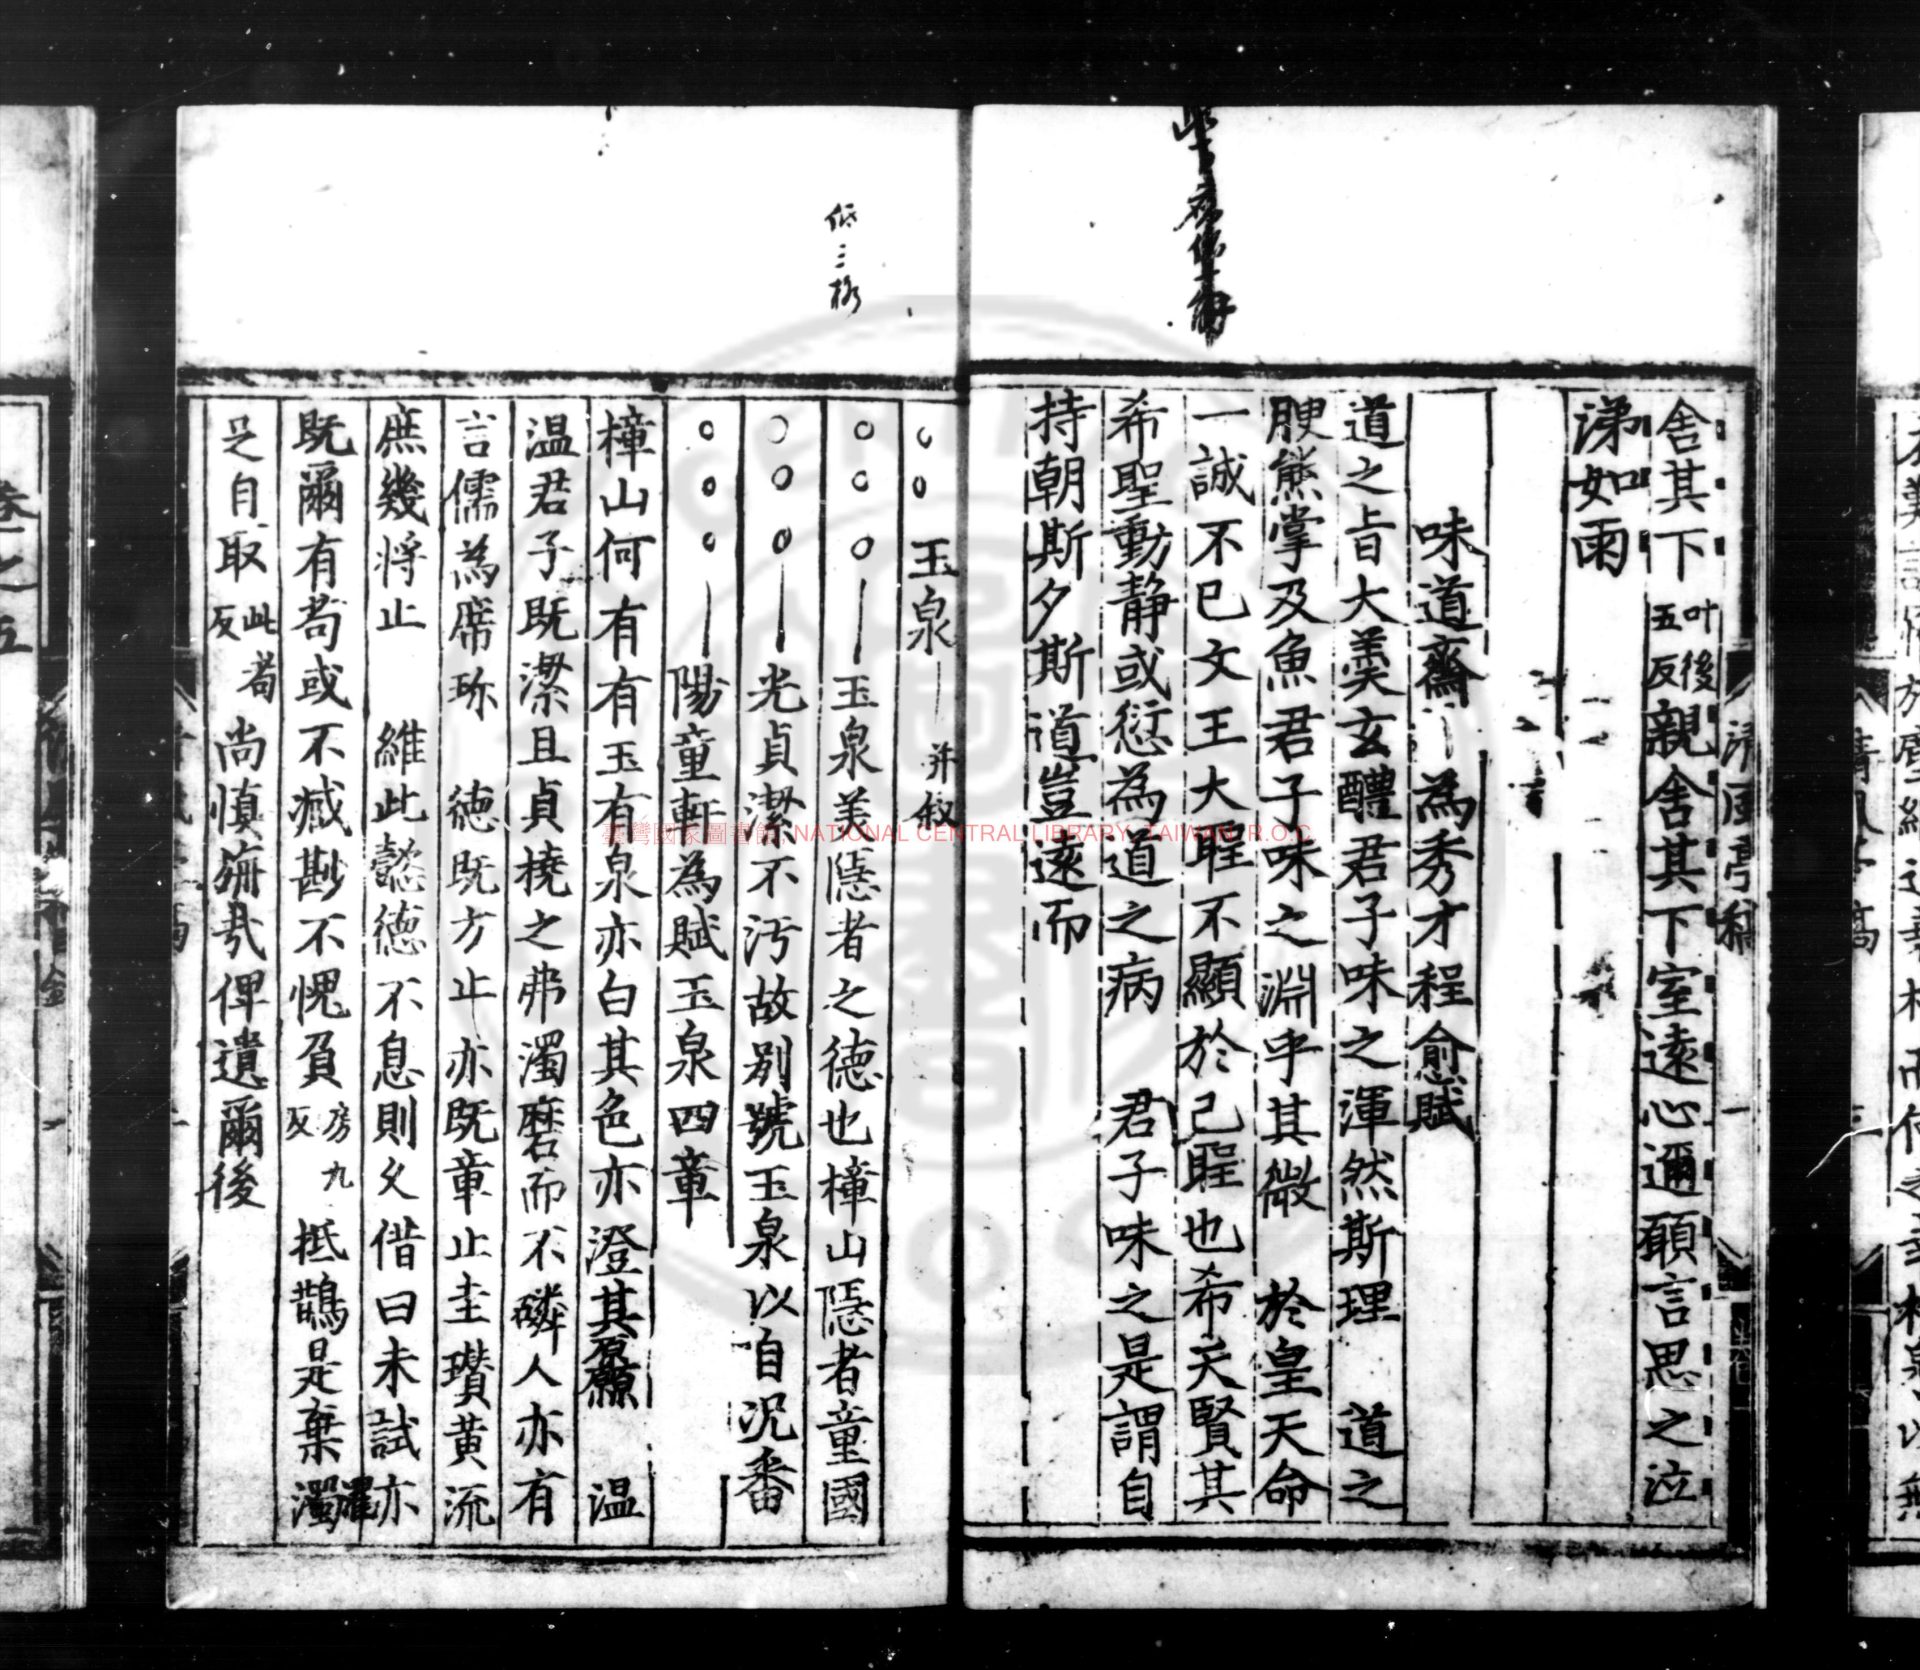 舎其下叶後五反親舎其下室遠心邇願言思之泣
涕如雨
味道齋為秀才程愈賦
道之旨大羮玄醴君子味之渾然斯理　道之
腴熊掌及魚君子味之淵乎其微　於皇天命
一誠不已文王大聖不顯於己聖也希天賢其
希聖動静或愆為道之病　君子味之是謂自
持朝斯夕斯道豈遠而
低三格
玉泉并叙
玉泉美隱者之德也樟山隱者童國
光貞潔不汚故别號玉泉以自況番
陽童軒為賦玉泉四章
樟山何有有玉有泉亦白其色亦澄其源　温
温君子既潔且貞撓之弗濁磨而不磷人亦有
言儒為席珎　德既方止亦既章止圭瓚黄流
庶幾将止　維此懿德不息則乆借曰未試亦
既爾有苟或不臧尠不愧負房九反　抵鵲是棄濯濁
是自取此苟反尚慎旃㢤俾遺爾後
清風亭稿
臺灣國家圖書館, NATIONAL CENTRAL LIBRARY, TAIWAN, R.O.C.